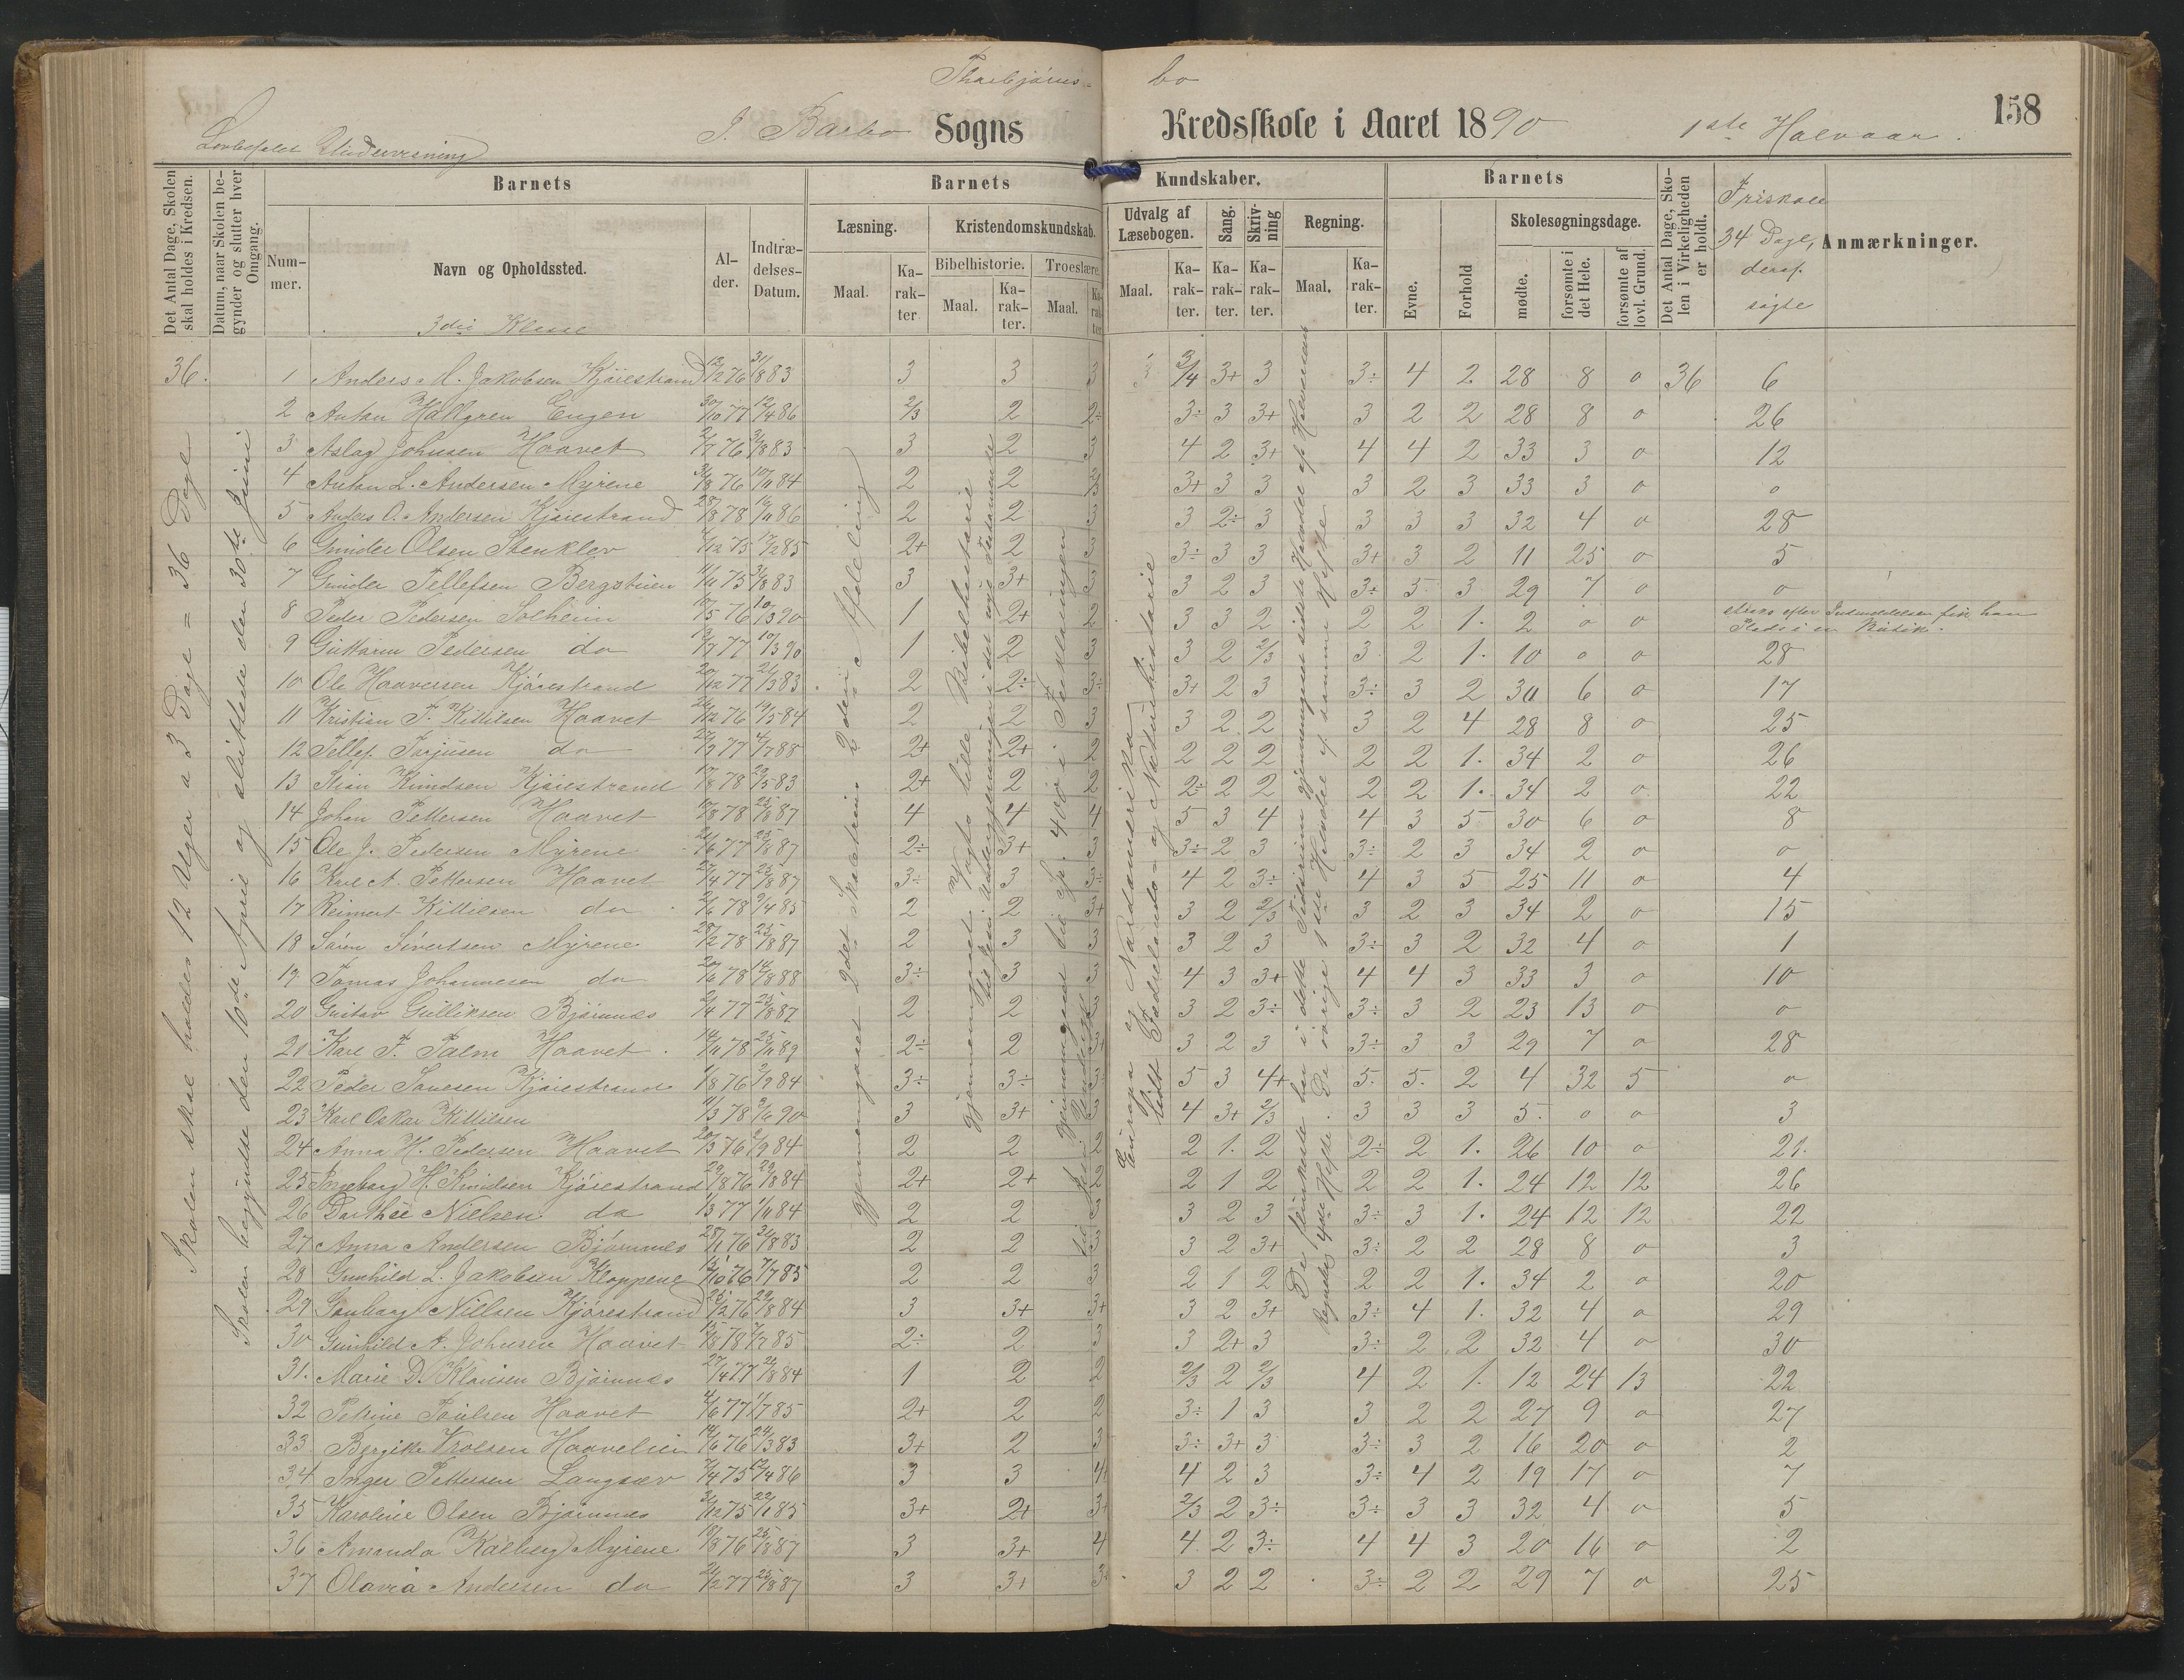 Thorbjørns-
bo
158
Lovbefalet Undervisning
I Barbo Sogns
Kredsskole i Aaret 1890
1ste Halvaar.
Det Antal Dage, Skolen skal holdes i Kredsen.
Datum, naar Skolen begynder og slutter hver Omgang.
Barnets
Nummer.
Navn og Opholdssted.
Alder.
Indtrædelses-Datum.
Barnets
Kundskaber.
Læsning.
Maal.
Karakter
Kristendomskundskab.
Bibelhistorie.
Maal.
Karakter.
Troeslære.
Maal.
Karakter
Udvalg af Læsebogen.
Maal.
Karakter.
Sang.
Karakter.
Skrivning
Karakter.
Regning.
Maal.
Karakter.
Barnets
Evne.
Forhold
Skolesøgningsdage.
mødte.
forsømte i det Hele.
forsømte af lovl. Grund.
Det Antal Dage, Skolen i Virkeligheden er holdt.
Friskole
34 Dage,
deraf
søgte
Anmærkninger.
3die Klasse
Skolen skal holdes 12 Uger a 3 Dage = 36 Dage
Skolen begyndte den 10de April og sluttede den 30te Juni
36. 1 Anders M. Jakobsen Kjøiestrand 12/2 76 31/8 83 3 3 3 3/4 3+ 3 3÷ 4 2 28 8 0 36 6
2 Anton Hallgren Engen 30/10 77 12/4 86 2/3 2 2÷ 3÷ 3 3+ 3 2 2 28 8 0 26
3 Aslag Johnsen Haavet 2/7 76 31/8 83 3 2 3 4 2 3+ 4 4 2 33 3 0 12
4 Anton L. Andersen Myrene 31/8 76 10/11 84 2 2 2/3 3+ 3 3 3 2 3 33 3 0 0
5 Anders O. Andersen Kjøiestrand 28/8 78 16/11 86 2 2 3 3 2÷ 3 3 3 3 32 4 0 28
6 Gunder Olsen Stenklev 2+ 2 3 3÷ 3 3 3+ 3 2 11 25 0 5
7 Gunder Tellefsen Bergstuen 11/11 75 31/8 83 3 3+ 3 3 2 3 3÷ 5 3 29 7 0 0
8 Peder Pedersen Solheim 10/5 76 10/3 90 1 2+ 2 3 3 2 2 2 1. 2 0 0 straks efter Indmeldelsen fik han Plads i en Butik.
9 Guttorm Pedersen do 77 10/3 90 1 2 3 3 2 2/3 3 2 1. 10 0 0 28
10 Ole Haaversen Kjøiestrand 20/12 77 83 2 2÷ 3÷ 3+ 2 3 3÷ 3 2 30 6 0 17
11 Kristian T. Kittilsen Haavet 12 76 19/5 84 2 2 3 3 2 2 3 2 4 28 8 0 25
12 Tellef Torjusen do 27/9 77 4/7 88 2+ 2+ 2 2 2 2 2 2 1. 34 2 0 26
13 Stian Knudsen Kjøiestrand 78 29/5 83 2+ 2 2 2÷ 2 2 2 2 1. 34 2 0 22
14 Johan Pettersen Haavet 10/8 78 25/8 87 4 4 4 5 3 4 4 3 5 30 6 0 8
15 Ole J. Pedersen Myrene 21/6 77 25/8 87 2÷ 3+ 3 3÷ 2 3 3÷ 2 3 34 2 0 0
16 Karl A. Pettersen Haavet 27/4 77 25/8 87 3÷ 3 3÷ 4 2 3÷ 4 3 5 25 11 0 4
17 Reimert Kittilsen do 78 85 2 2 3+ 3 2 2/3 3 2 3 34 2 0 15
18 Søren Sivertsen Myrene 28/12 78 25/8 87 2 3 3 3 2 3 3÷ 3 2 32 4 0 1
19 Tomas Johannesen do 20/6 78 14/8 88 3÷ 3 3 4 3 3+ 4 4 3 33 3 0 10
20 Gustav Gulliksen Bjørnnes 2/4 77 25/8 87 2 2 2 3 2 3÷ 3÷ 3 2 23 13 0 0
21 Karl F. Palm Haavet. 14/11 78 25/11 89 2÷ 2 3+ 3 2 3 3÷ 3 3 29 7 0 28
22 Peder Tønesen Kjøiestrand 1/8 76 2/9 84 3÷ 3÷ 3 5 3 4+ 5. 5. 2 4 32 5 0
23 Karl Oskar Kittilsen 11/3 78 90 3 3+ 3 4 3+ 2/3 3 3 3 5. 0 0 3
24 Anna H. Pedersen Haavet 20/3 76 2/9 84 2 2 2 2 1. 2 2÷ 2 1. 26 10 0 21.
25 Ingeborg H. Knudsen Kjøiestrand 29/8 76 29/8 84 2+ 2+ 2 2 1 2 2 2 1. 24 12 12 26
26 Dorthee Nielsen do 1/3 77 1/11 84 2 2 3 3 2 3 3÷ 3 1. 24 12 12 22
27 Anna Andersen Bjørnnes 28/1 76 31/8 83 2 2 3 3 2 3+ 3÷ 2 2 28 8 0 3
28 Gunhild L. Jakobsen Kloppene 12/10 76 7/7 85 2 2 3 2 1 2 2 2 1. 34 2 0 20
29 Gunborg Nielsen Kjøiestrand 25/2 76 29/8 84 3 3+ 3+ 3 2 3+ 3÷ 4 1. 32 4 0 29
30 Gunhild A. Johnsen Haavet 15/8 78 7/7 85 2÷ 2 3 3 2+ 3 3÷ 2 2 32 4 0 30
31. Marie D. Klausen Bjørnnes 27/4 77 84 1 2 2 2/3 2 2/3 4 2 1. 12 24 13 22
32 Petrine Poulsen Haavet 4/6 77 1/7 85 2+ 2 2 3÷ 1 3 3 2 2 27 9 0 27
33 Bergitte Trolsen Haavelien 14/6 76 24/3 83 3+ 2 3 3÷ 3+ 3 3÷ 3 2 16 20 0 2
34 Inger Pettersen Langsæv 7/4 75 12/4 86 3 3 4 4 2 3 3÷ 4 2 19 17 0 7
35 Karoline Olsen Bjørnnes 31/12 75 22/1 85 3+ 2+ 3+ 2/3 2 3÷ 3÷ 3 3 32 4 0 5
36 Amanda Kalberg Myrene. 18/8 76 25/8 87 3 3+ 4 4 2 3÷ 4 4 3 20 16 0 2
37 Olavia Andersen do 21/2 77 25/8 87 3 3+ 3÷ 3 2 2 3÷ 2 2 29 7 0 25
gjennemgaaet 2det Skoletrins 2den Afdeling
gjennemgaaet Vogts lille Bibelhistorie
til Jesu Undergjerninger i det nye Testamente
gjennemgaaet til Sp. 400 i Forklaringen
Europa og Nordamerika
lidt Fædrelands- og Naturhistorie
De flinkeste har i dette Tidsrum gjennemgaaet sidste Halvdel af Halvorsens
Regnebogs 4de Hefte. De øvrige 1ste Halvdel af samme Hefte